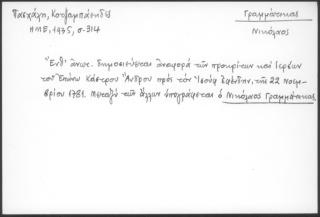 Πασχάλη, Κοτζαμπάσηδες
ΗΜΕ, 1975, σ. 314
Γραμμάτικας
Νικόλαος
Ἔνθ' ἀνωτ. δημοσιεύεται ἀναφορά τῶν προκρίτων καί Ἱερέων
τοῦ Ἐπάνω Κάστρου Ἄνδρου πρός τόν Ἰσούφ Ἐφέντην, τῆς 22 Νοεμ-
βρίου 1781. Μεταξύ τῶν ἄλλων ὑπογράφεται ὁ Νικόλαος Γραμμάτικας.